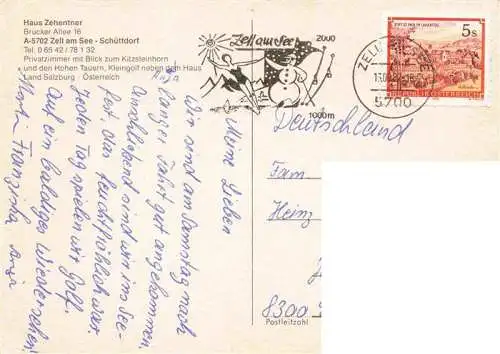 Haus Zehentner
Brucker Allee 16
A-5702 Zell am See - Schüttdorf
Tel. 0 65 42 / 78 1 32
Privatzimmer mit Blick zum Kitzsteinhorn
und den Hohen Tauern, Kleingolf neben dem Haus
Land Salzburg Österreich
Zell am See
2000
1000m
5700
5 s
REPUBLIK ÖSTERREICH
Meine Lieben
Wir sind am Samstag nach
langer Fahrt gut angekommen.
Anschließend sind wir ins See-
fest, das feuchtfröhlich war.
Jeden Tag spielen wir Golf.
Auf ein baldiges Wiedersehen
Martin Franziska
Deutschland
Fam.
Heinz
8300
Postleitzahl